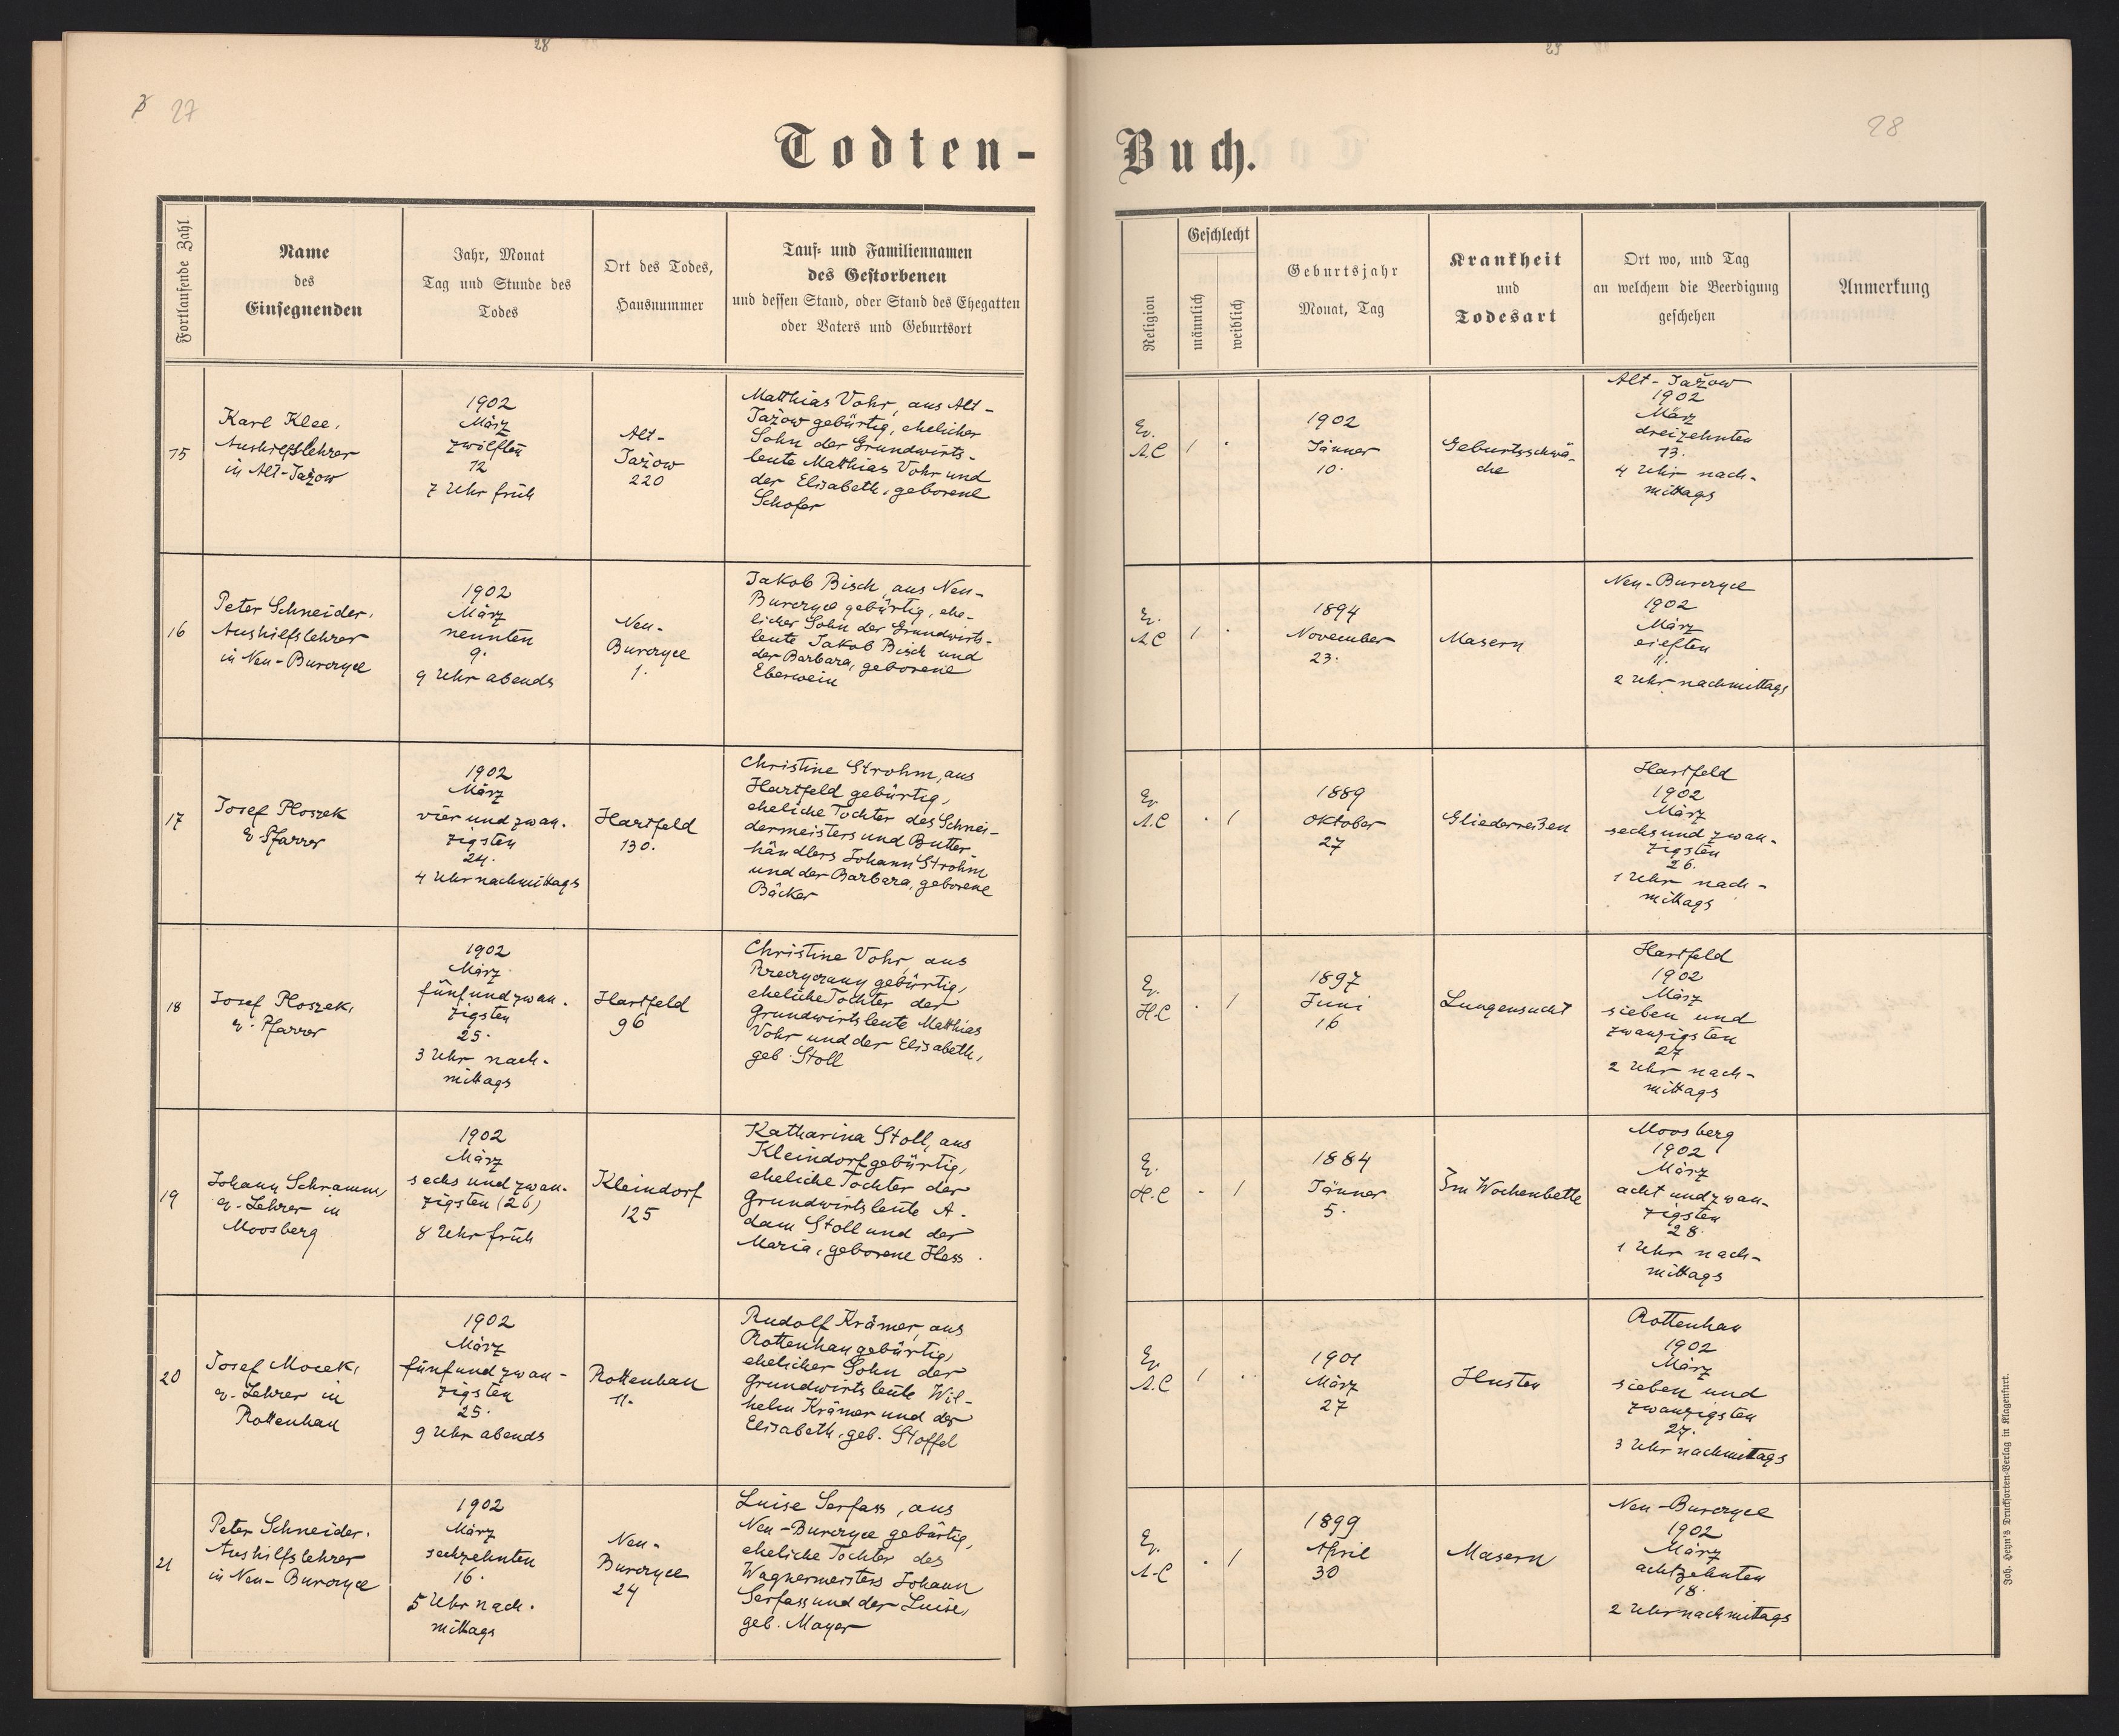 28
29
27
28
Todten-
Buch.
Fortlaufende Zahl
Name
des
Einsegnenden
Jahr, Monat
Tag und Stunde des
Todes
Ort des Todes,
Hausnummer
Tauf- und Familiennamen
des Gestorbenen
und dessen Stand, oder Stand des Ehegatten
oder Vaters und Geburtsort
Religion
Geschlecht
männlich
weiblich
Geburtsjahr
Monat, Tag
Krankheit
und
Todesart
Ort wo, und Tag
an welchem die Beerdigung
geschehen
Anmerkung
15
Karl Klee,
Aushilfslehrer
in Alt-Jażow
1902
März
zwölften
12
7 Uhr früh
Alt-
Jażow
220
Matthias Vohr, aus Alt-
Jażow gebürtig, ehelicher
Sohn der Grundwirts-
leute Matthias Vohr und
der Elisabeth, geborene
Schofer
Ev.
A.C
1
1902
Jänner
10.
Geburtsschwä-
che
Alt-Jażow
1902
März
dreizehnten
13.
4 Uhr nach-
mittags
16
Peter Schneider,
Aushilfslehrer
in Neu-Burczyce
1902
März
neunten
9.
9 Uhr abends
Neu-
Burczyce
1.
Jakob Bisch, aus Neu-
Burczyce gebürtig, ehe-
licher Sohn der Grundwirts-
leute Jakob Bisch und
der Barbara, geborene
Eberwein
Ev.
A.C
1
1894
November
23.
Masern
Neu-Burczyce
1902
März
eilften
11.
2 Uhr nachmittags
17
Josef Ploszek
ev. Pfarrer
1902
März
vierundzwan-
zigsten
24.
4 Uhr nachmittags
Hartfeld
130.
Christine Strohm, aus
Hartfeld gebürtig,
eheliche Tochter des Schnei-
dermeisters und Butter-
händlers Johann Strohm
und der Barbara, geborene
Bäcker
Ev.
A.C
1
1889
Oktober
27
Gliederreißen
Hartfeld
1902
März
sechsundzwan-
zigsten
26.
1 Uhr nach-
mittags
18
Josef Ploszek,
ev. Pfarrer
1902
März
fünfundzwan-
zigsten
25.
3 Uhr nach-
mittags
Hartfeld
96
Christine Vohr, aus
gebürtig,
eheliche Tochter der
Grundwirtsleute Matthias
Vohr und der Elisabeth,
geb. Stoll
Ev.
H.C
1
1897
Juni
16
Lungensucht
Hartfeld
1902
März
sieben und
zwanzigsten
27
2 Uhr nach-
mittags
19
Johann Schramm,
ev. Lehrer in
Moosberg
1902
März
sechsundzwan-
zigsten (26)
8 Uhr früh
Kleindorf
125
Katharina Stoll, aus
Kleindorf gebürtig,
eheliche Tochter der
Grundwirtsleute A-
dam Stoll und der
Maria, geborene Hess.
Ev.
H.C
1
1884
Jänner
5.
Im Wochenbette
Moosberg
1902
März
achtundzwan-
zigsten
28.
1 Uhr nach-
mittags
20
Josef Mocek,
ev. Lehrer in
Rottenhan
1902
März
fünfundzwan-
zigsten
25.
9 Uhr abends
Rottenhan
11.
Rudolf Krämer, aus
Rottenhan gebürtig,
ehelicher Sohn der
Grundwirtsleute Wil-
helm Krämer und der
Elisabeth, geb. Stoffel
Ev.
A.C
1
1901
März
27
Husten
Rottenhan
1902
März
sieben und
zwanzigsten
27.
3 Uhr nachmittags
21
Peter Schneider,
Aushilfslehrer
in Neu-Burczyce
1902
März
sechzehnten
16.
5 Uhr nach-
mittags
Neu-
Burczyce
24
Luise Serfass, aus
Neu-Burczyce gebürtig,
eheliche Tochter des
Wagnermeisters Johann
Serfass und der Luise,
geb. Mayer
Ev.
A.C
1
1899
April
30
Masern
Neu-Burczyce
1902
März
achtzehnten
18.
2 Uhr nachmittags
Joh. Heyn's Drucksorten-Verlag in Klagenfurt.